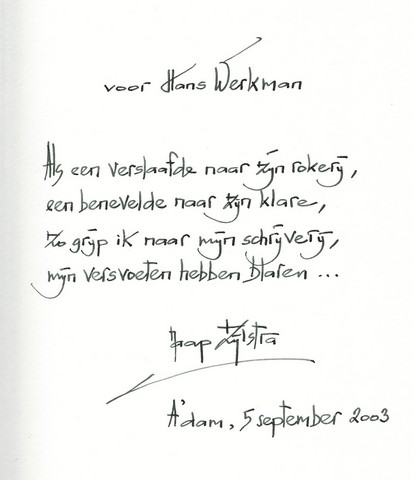 voor Hans Werkman
Als een verslaafde naar zijn rokerij,
een benevelde naar zijn klare,
zo grijp ik naar mijn schrijverij,
mijn versvoeten hebben blaren ...
Jaap Zijlstra
A'dam, 5 september 2003